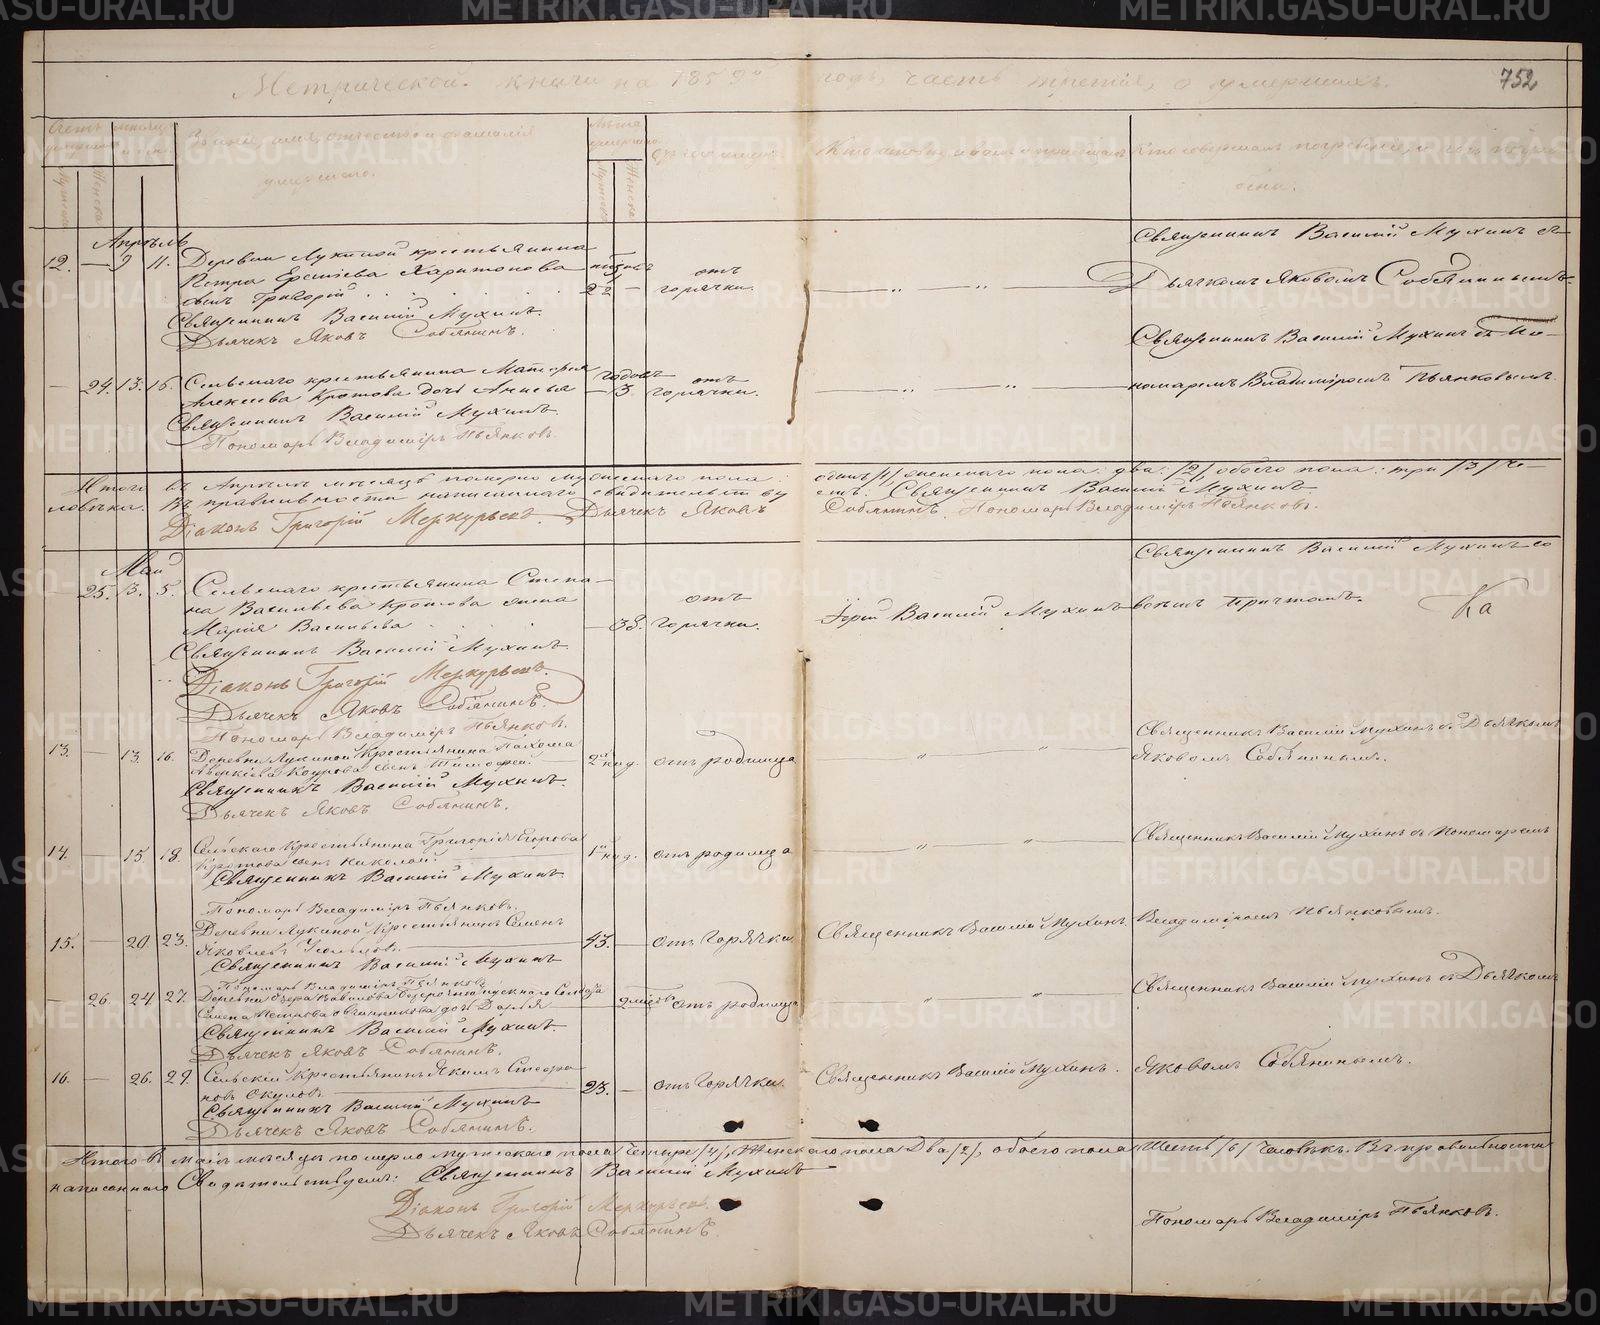 Метрической книги на 1859й годъ, часть третія, о умершихъ.
752
Званіе, имя, отчество и фамилія умершаго.
Апрѣль
12. — 9 11. Деревни Лукиной крестьянина
Петра Харитонова
сынъ Григорій
Священникъ Василій Мухинъ.
Дьячекъ Яковъ Собянинъ.
22 —
отъ горячки.
Священникъ Василій Мухинъ съ
Дьячкомъ Яковомъ Собяниннымъ.
— 24. 13. 16. Сельскаго крестьянина Матвея
Алексеева Кротова дочь
Священникъ Василій Мухинъ.
Пономарь Владиміръ Пьянковъ.
— 3
отъ горячки.
Священникъ Василій Мухинъ съ По-
номаремъ Владиміромъ Пьянковымъ.
Итого въ Апрѣлѣ мѣсяцѣ померло мужескаго пола: одинъ /1/ женскаго пола: два: /2/ обоего пола: три /3/ че-
ловѣка. Въ правильности написаннаго свидѣтельству-
емъ: Священникъ Василій Мухинъ
Діаконъ Григорій Меркурьевъ. Дьячекъ Яковъ Собянинъ. Пономарь Владиміръ Пьянковъ.
Май
— 25. 3. 5. Сельскаго крестьянина Степа-
на Васильева Кротова жена
Марія Васильева
Священникъ Василій Мухинъ
Діаконъ Григорій Меркурьевъ.
Дьячекъ Яковъ Собянинъ.
Пономарь Владиміръ Пьянковъ.
— 38.
отъ горячки.
Іерей Василій Мухинъ
Священникъ Василій Мухинъ со
всѣмъ причтомъ.
Ка
13. — 13. 16. Деревни Лукиной Крестьянина Пахома
сынъ Тимофей
Священникъ Василій Мухинъ.
Дьячекъ Яковъ Собянинъ.
2 нед.
отъ родимца
Священникъ Василій Мухинъ съ Дьячкомъ
Яковомъ Собяниным.
14. — 15. 18. Сельскаго Крестьянина Григорія Егорова
Кротова сынъ Николай
Священникъ Василій Мухинъ.
Пономарь Владиміръ Пьянковъ.
1 нед.
отъ родимца
Священникъ Василій Мухинъ съ Пономаремъ
Владиміромъ Пьянковымъ.
15. — 20. 23. Деревни Лукиной Крестьянинъ Семенъ
Яковлевъ
Священникъ Василій Мухинъ
Пономарь Владиміръ Пьянковъ
43. —
отъ Горячки
Священникъ Василій Мухинъ.
— 26. 24. 27. Деревни Озера Вавилова Безсрочноотпускнаго Солдата
Семена Петрова Овчинникова дочь Дарья
Священникъ Василій Мухинъ.
Дьячекъ Яковъ Собянинъ.
2 мѣсец.
отъ родимца
Священникъ Василій Мухинъ съ Дьячкомъ
Яковомъ Собяниным.
16. — 26. 29. Сельскій Крестьянинъ Якимъ Стефа-
новъ Окуловъ
Священникъ Василій Мухинъ
Дьячекъ Яковъ Собянинъ.
23. —
отъ Горячки.
Священникъ Василій Мухинъ.
Итого въ маѣ мѣсяцѣ померло мужескаго пола Четыре /4/, Женскаго пола Два /2/, обоего пола Шесть /6/ Человѣкъ. Въ правильности
написаннаго Свидѣтельствуемъ: Священникъ Василій Мухинъ
Діаконъ Григорій Меркурьевъ.
Дьячекъ Яковъ Собянинъ.
Пономарь Владиміръ Пьянковъ.
METRIKI.GASO-URAL.RU